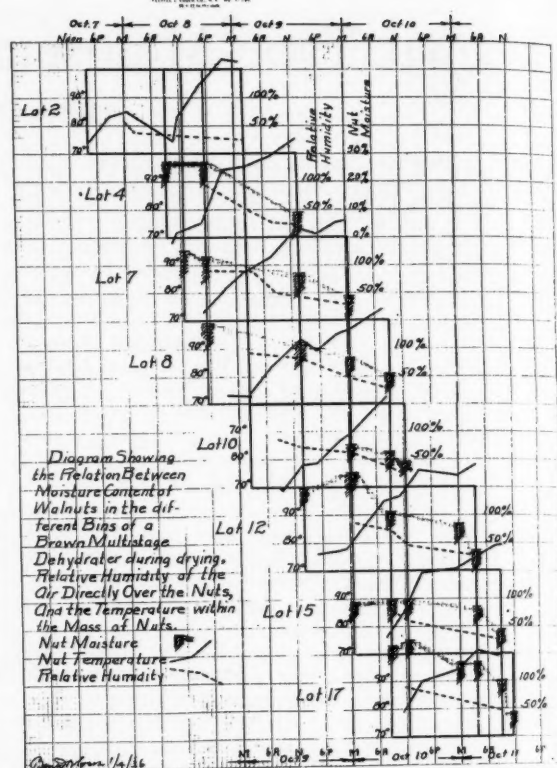 Oct. 7 Oct 8 Oct 9 Oct 10
Noon 6P M 6A N 6P M 6A N 6P M 6A N 6P M 6A N
Lot 2
90°
80°
70°
100%
50%
Relative Humidity
Nut Moisture
30%
20%
10%
0%
Lot 4
90°
80°
70°
100%
50%
Lot 7
90°
80°
70°
100%
50%
Lot 8
90°
80°
70°
100%
50%
Lot 10
70°
80°
70°
100%
50%
Lot 12
90°
80°
70°
100%
50%
Lot 15
90°
80°
70°
100%
50%
Lot 17
90°
80°
70°
100%
50%
Diagram Showing
the Relation Between
Moisture Content of
Walnuts in the dif-
ferent Bins of a
Brown Multistage
Dehydrater during drying.
Relative Humidity of the
Air Directly Over the Nuts,
And the Temperature within
the Mass of Nuts.
Nut Moisture
Nut Temperature
Relative Humidity
1/4/36
6A 6P M 6A N 6P M 6A N
Oct 9 Oct 10 Oct 11